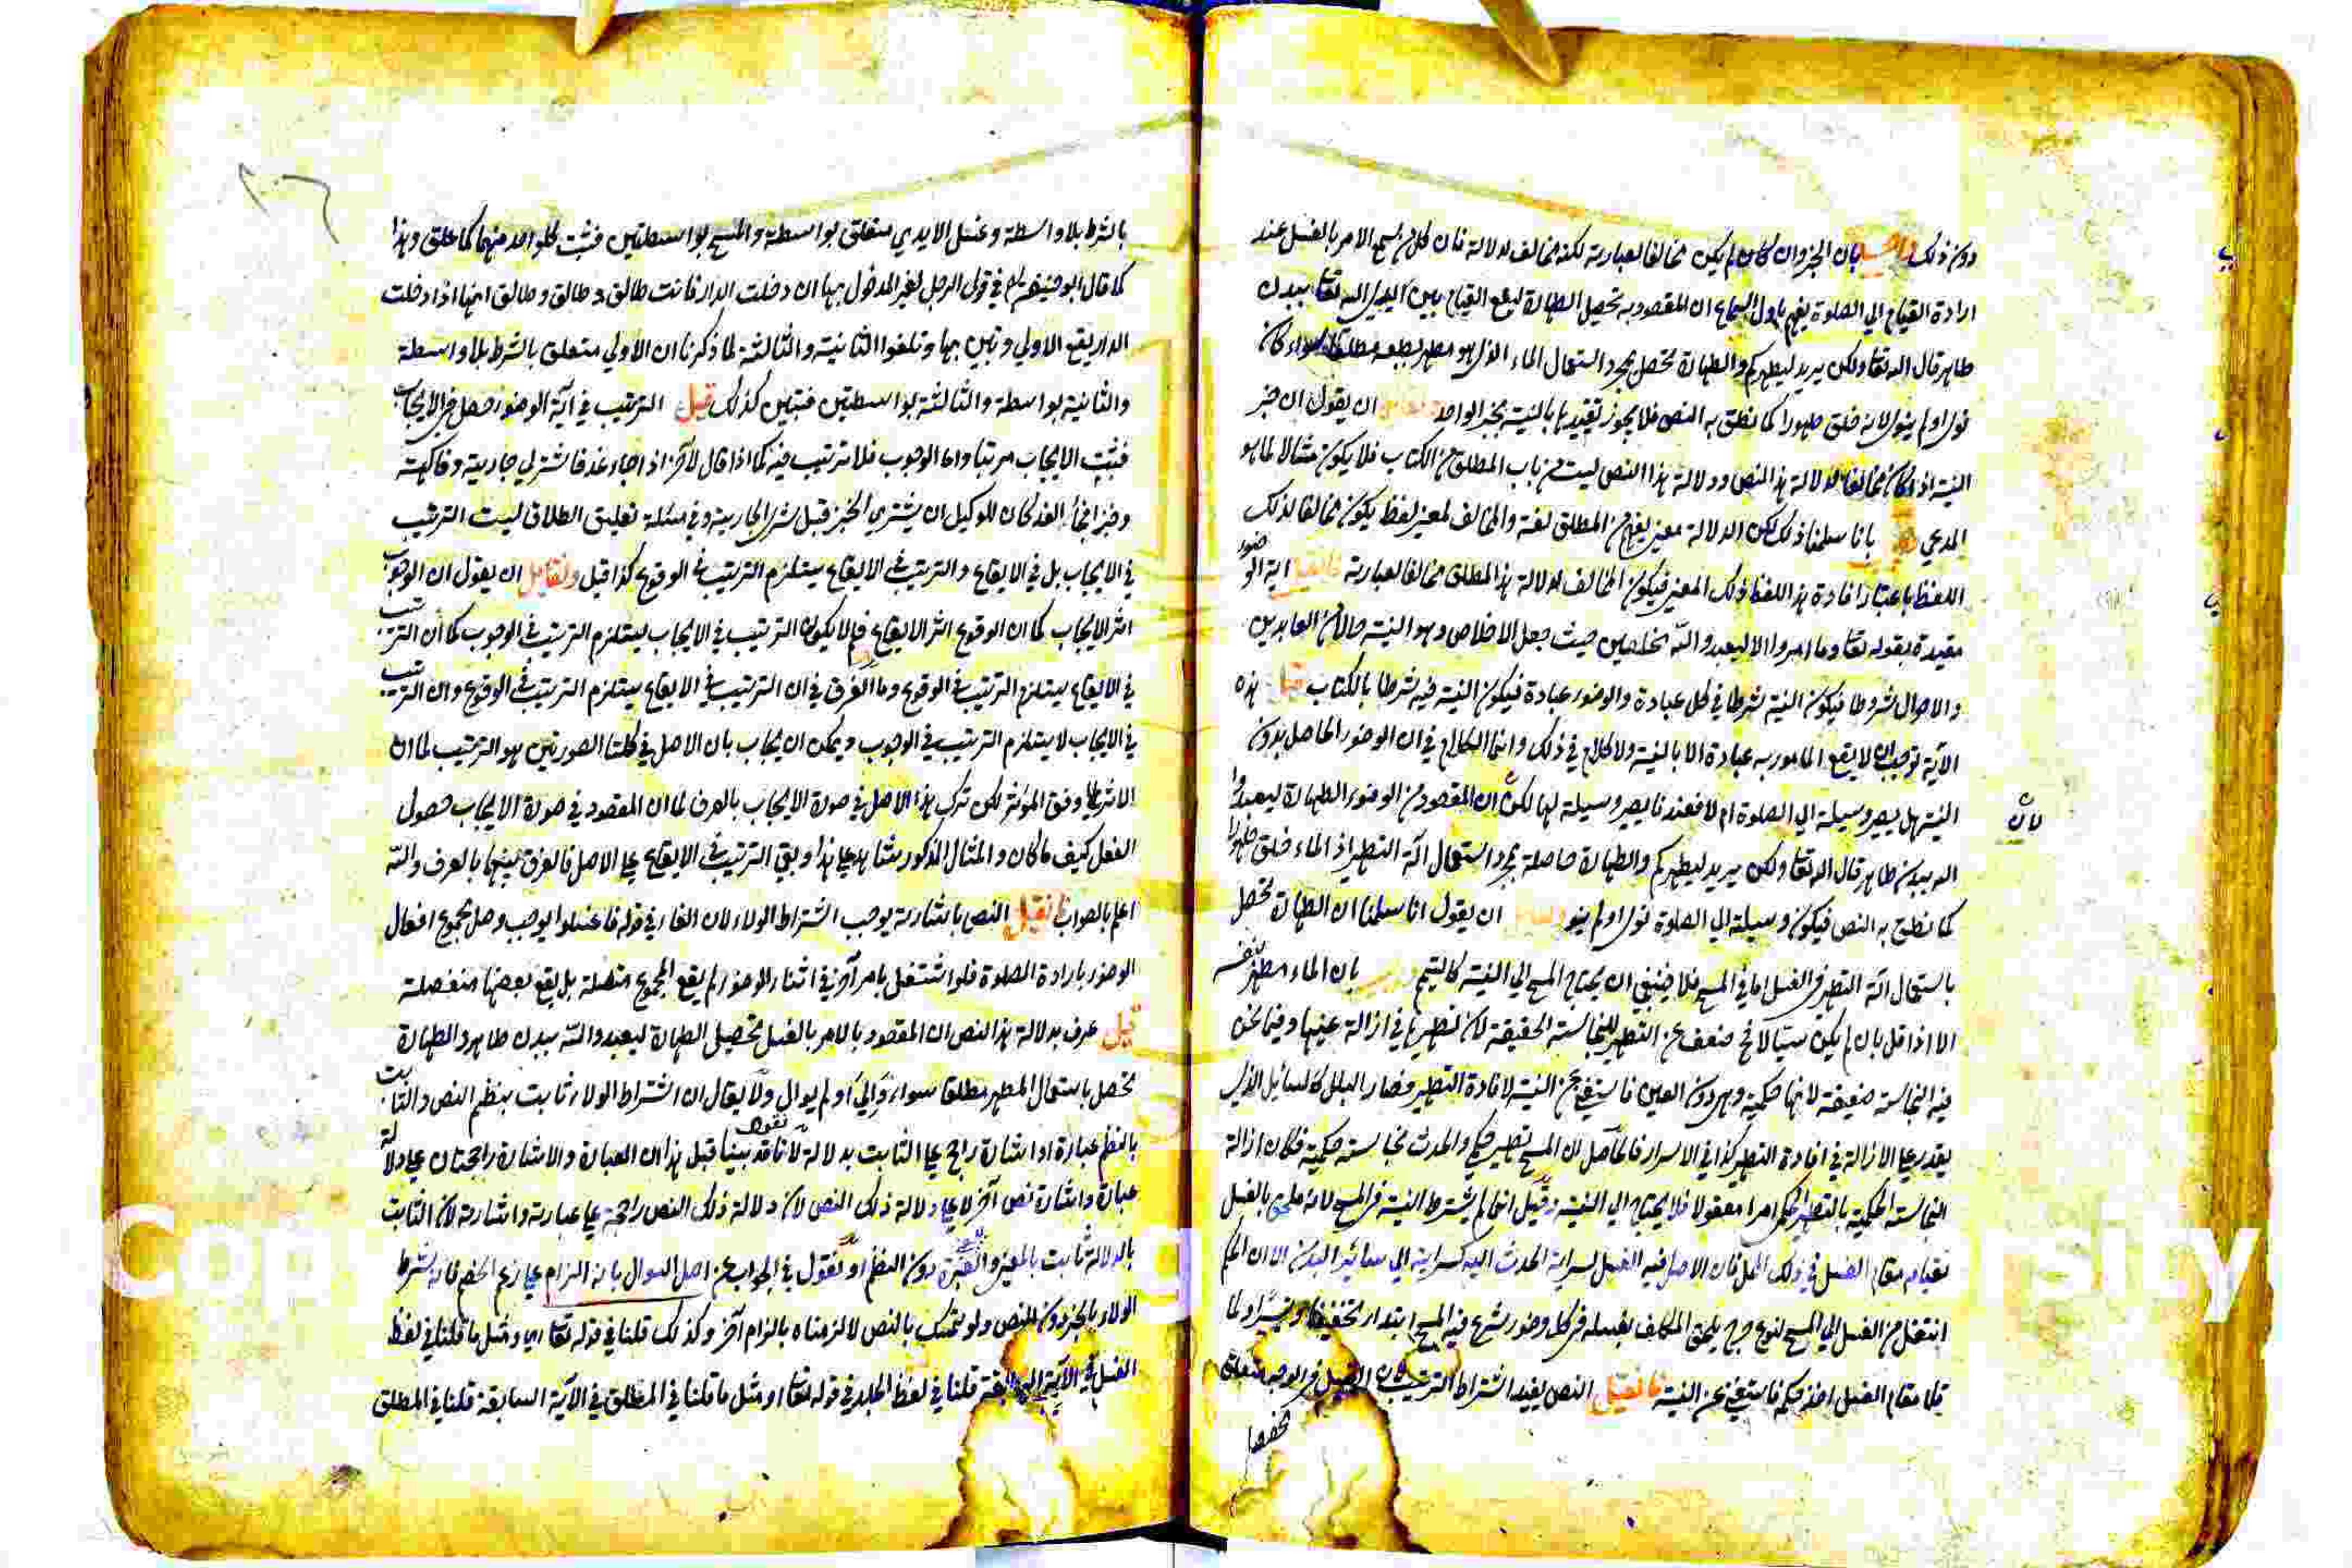 دون ذلك بان الخبر وان كان لم يكن مخالفا لعبارته لكنه مخالف لدلالة فان كل من سمع الامر بالغسل عند
ارادة القيام الي الصلوة يفهم باول السماع ان المقصود به تحصيل الطهارة ليقع القيام بين يدي الله تعا ببدن
طاهر قال الله تعا ولكن يريد ليطهركم والطهارة تحصل بمجرد استعمال الماء الذي هو مطهر بطبعه مطلقا سواء كان
نوي او لم ينو لانه خلق طهورا كما نطق به النص فلا يجوز تقييدها بالنية بخبر الواحد ان يقول ان خبر
النية اذا كان مخالفا لدلالة هذا النص ودلالة هذا النص ليست من باب المطلق من الكتاب فلا يكون مثالا لما هو
المدعي بانا سلمنا ذلك لكن الدلالة معني يفهم من المطلق لغة والمخالف لمعني لفظ يكون مخالفا لذلك
اللفظ باعتبار افادة هذا اللفظ ذلك المعني فيكون المخالف لدلالة هذا المطلق مخالفا لعبارته فان قيل اية الوضوء
مقيدة بقوله تعا وما امروا الا ليعبدوا الله مخلصين حيث جعل الاخلاص وهو النية حالا من العابدين
والاحوال شروط فيكون النية شرطا في كل عبادة والوضوء عبادة فيكون النية فيه شرطا بالكتاب قلنا هذه
الآية توجب ان لا يقع المامور به عبادة الا بالنية ولا كلام في ذلك وانما الكلام في ان الوضوء الحاصل بدون
النية هل يصير وسيلة الي الصلوة ام لا فعندنا يصير وسيلة لها لان المقصود من الوضوء الطهارة ليعبدوا
لان
الله ببدن طاهر قال الله تعا ولكن يريد ليطهركم والطهارة حاصلة بمجرد استعمال آلة التطهير اذ الماء خلق طهورا
كما نطق به النص فيكون وسيلة الي الصلوة نوي او لم ينو ان يقول انا سلمنا ان الطهارة تحصل
باستعمال آلة التطهير في الغسل اما في المسح فلا فينبغي ان يحتاج المسح الي النية كالتيمم بان الماء مطهر بنفسه
الا اذا قل بان لم يكن سيالا فح ضعف عن التطهير للنجاسة الحقيقة لان تطهيرها في ازالة عينها وفيما نحن
فيه النجاسة ضعيفة لانها حكمية وهي دون العين فاستغني عن النية لافادة التطهير وصار البلل كالسائل الذي
يقدر علي الازالة في افادة التطهير كذا في الاسرار فالحاصل ان المسح تطهير حكمي والحدث نجاسة حكمية فكان ازالة
النجاسة الحكمية بالتطهير الحكمي امرا معقولا فلا يحتاج الي النية وقيل انما لم يشترط النية في المسح لانه ملحق بالغسل
لقيامه مقام الغسل في ذلك المحل فان الاصل فيه الغسل لسراية الحدث اليه كسرايته الي سائر البدن الا ان الحكم
انتقل من الغسل الي المسح لنوع حرج يلحق المكلف بغسله في كل وضوء شرع فيه المسح ابتداء تخفيفا وتيسيرا ولما
قام مقام الغسل اخذ حكمه فاستغني عن النية فان قيل النص يفيد اشتراط الترتيب فان الغسل في الوجه متعلق
بالشرط بلا واسطة وغسل الايدي متعلق بواسطة والمسح بواسطتين فثبت كل واحد منهما كما علق وهذا
كما قال ابو حنيفة رح في قول الرجل لغير المدخول بها ان دخلت الدار فانت طالق وطالق وطالق انها اذا دخلت
الدار يقع الاولي وتبين بها وتلغوا الثانية والثالثة لما ذكرنا ان الاولي متعلق بالشرط بلا واسطة
والثانية بواسطة والثالثة بواسطتين فتبين كذلك قيل الترتيب في آية الوضوء حصل في الايجاب
فيثبت الايجاب مرتبا واما الوجوب فلا ترتيب فيه كما اذا قال لآخر اذا جاء غد فاشتر لي جارية وفاكهة
وخبزا فجاء الغد كان للوكيل ان يشتري الخبز قبل شري الجارية وفي مسئلة تعليق الطلاق ليست الترتيب
في الايجاب بل في الايقاع والترتيب في الايقاع يستلزم الترتيب في الوقوع كذا قيل ولقائل ان يقول ان الوجوب
اثر الايجاب كما ان الوقوع اثر الايقاع فلم لا يكون الترتيب في الايجاب يستلزم الترتيب في الوجوب كما ان الترتيب
في الايقاع يستلزم الترتيب في الوقوع وما الفرق في ان الترتيب في الايقاع يستلزم الترتيب في الوقوع وان الترتيب
في الايجاب لا يستلزم الترتيب في الوجوب ويمكن ان يجاب بان الاصل في كلتا الصورتين هو الترتيب لما ان
الاثر علي وفق المؤثر لكن ترك هذا الاصل في صورة الايجاب بالعرف لما ان المقصود في صورة الايجاب حصول
الفعل كيف ما كان والمثال المذكور شاهد علي هذا وبقي الترتيب في الايقاع علي الاصل فالفرق بينهما بالعرف والله
اعلم بالصواب فان قيل النص باشارته يوجب اشتراط الولاء لان الفاء في قوله فاغسلوا يوجب وصل مجموع افعال
الوضوء بارادة الصلوة فلو اشتغل بامر آخر في اثناء الوضوء لم يقع المجموع متصلة بل يقع بعضها منفصلة
قيل عرف بدلالة هذا النص ان المقصود بالامر بالغسل تحصيل الطهارة ليعبدوا الله ببدن طاهر والطهارة
تحصل باستعمال المطهر مطلقا سواء والي او لم يوال ولا يقال ان اشتراط الولاء ثابت بنظم النص والثابت
بالنظم عبارة او اشارة راجح علي الثابت بدلالة لانا نقول قد بينا قبل هذا ان العبارة والاشارة راجحتان علي دلالة
عبارة واشارة نص آخر لا علي دلالة ذلك النص لان دلالة ذلك النص راجحة علي عبارته واشارته لان الثابت
بالدلالة ثابت بالمعني والعبرة دون النظم او نقول في الجواب عن اصل السوال بانه الزام علي زعم الخصم فانه يشترط
الولاء بالخبر دون النص ولو تمسك بالنص لالزمناه بالزام آخر وكذلك قلنا في قوله تعا اي ومثل ما قلنا في لفظ
الغسل في الآية السابقة قلنا في لفظ الجلد في قوله تعا او مثل ما قلنا في المطلق في الآية السابقة قلنا في المطلق